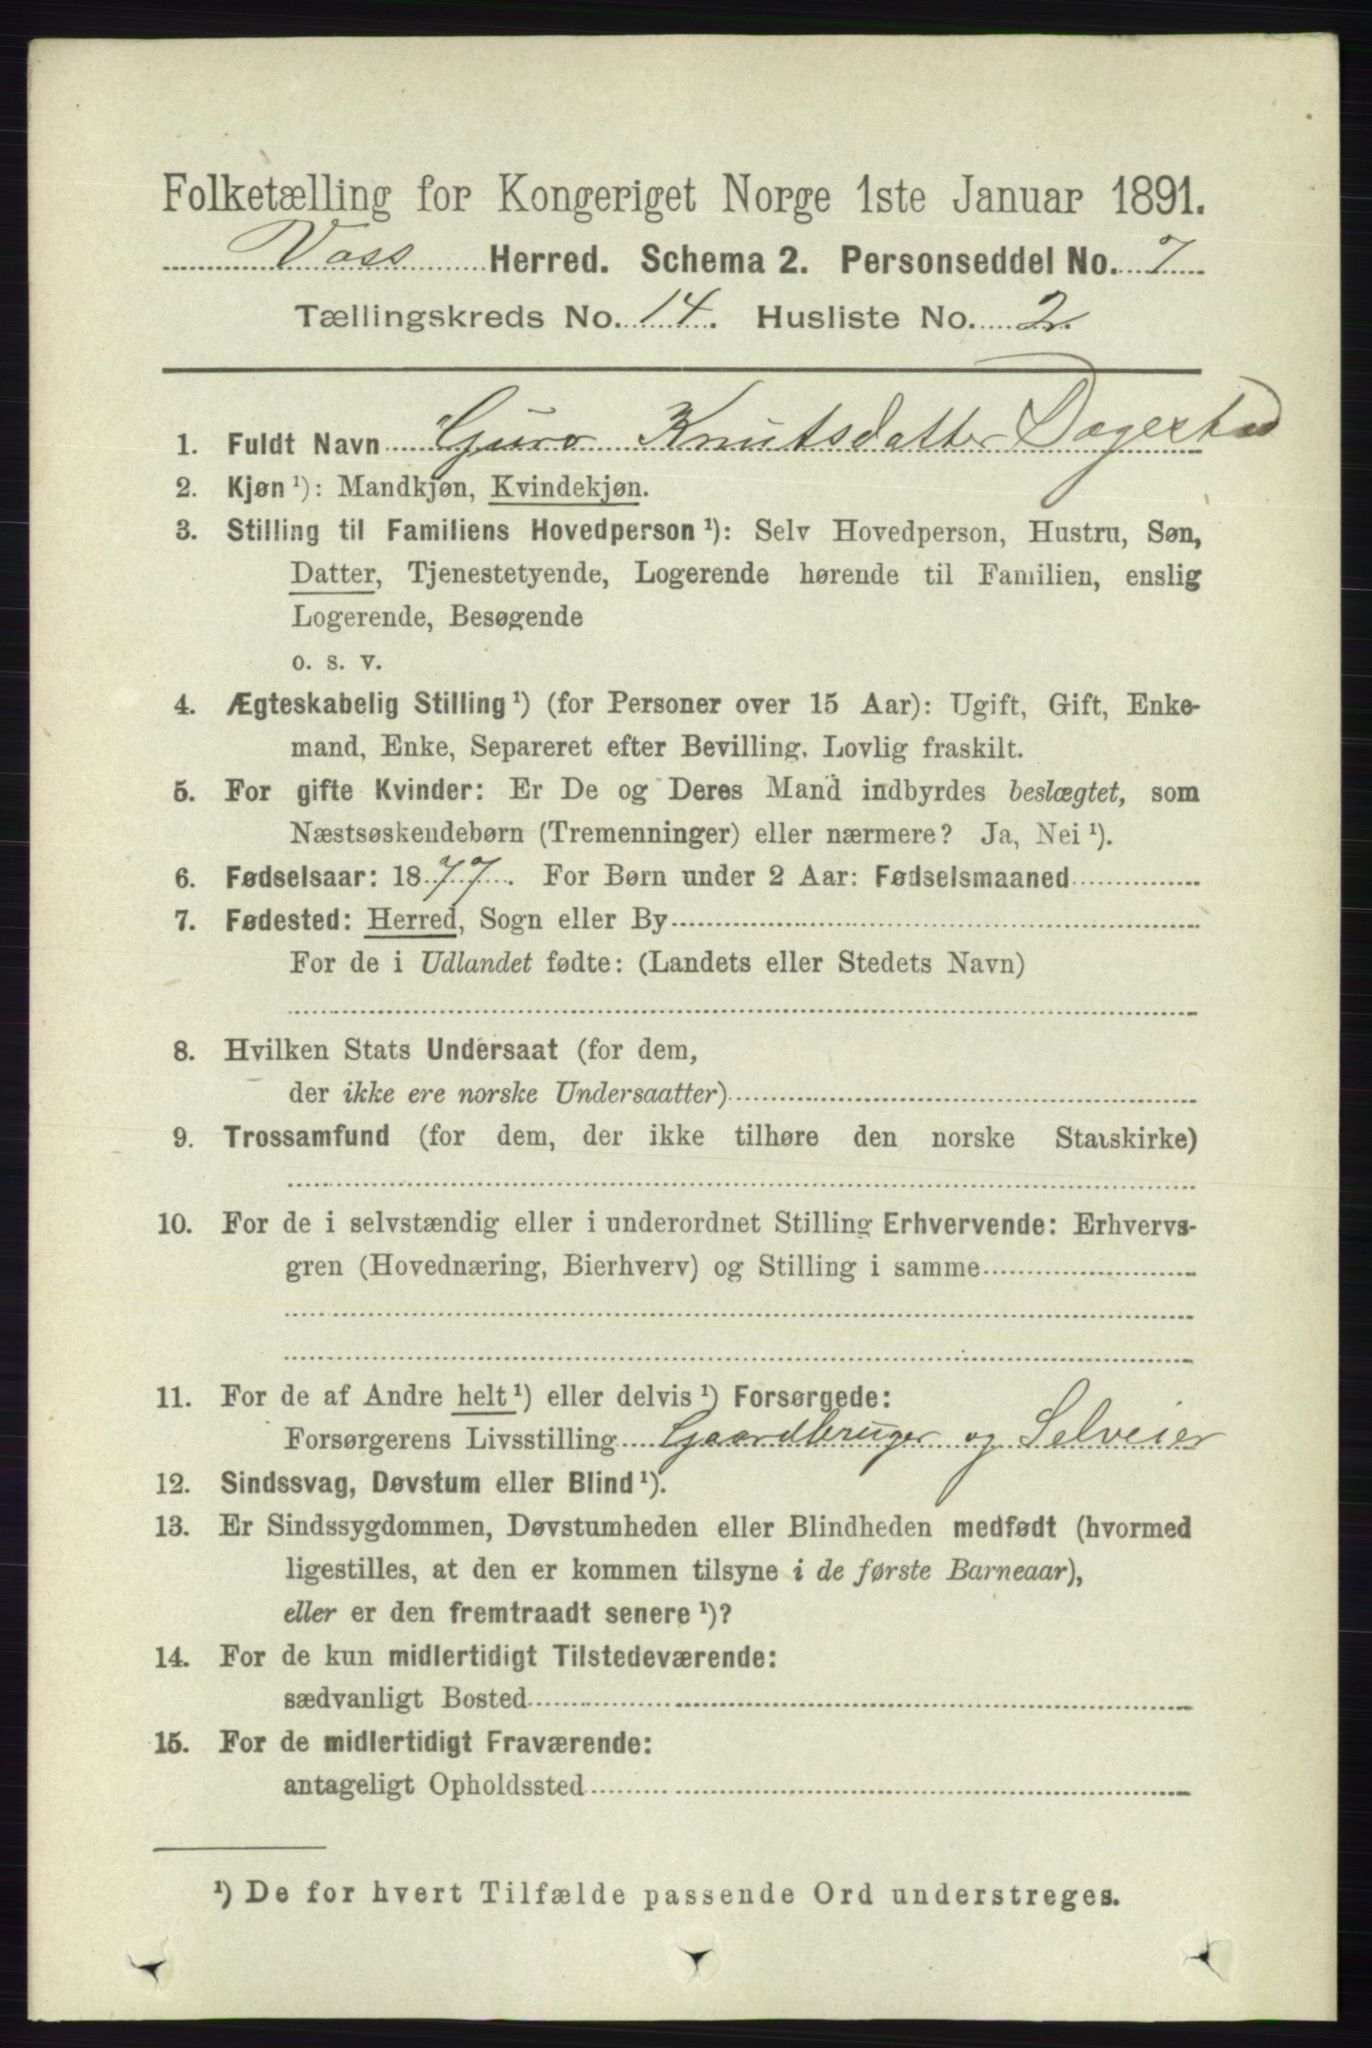 Folketælling for Kongeriget Norge 1ste Januar 1891.
Voss Herred. Schema 2. Personseddel No. 7
Tællingskreds No. 14. Husliste No. 2.
1. Fuldt Navn Guro Knutsdatter Dagestad
2. Kjøn ¹): Mandkjøn, Kvindekjøn.
3. Stilling til Familiens Hovedperson ¹): Selv Hovedperson, Hustru, Søn,
Datter, Tjenestetyende, Logerende hørende til Familien, enslig
Logerende, Besøgende
o. s. v.
4. Ægteskabelig Stilling ¹) (for Personer over 15 Aar): Ugift, Gift, Enke-
mand, Enke, Separeret efter Bevilling. Lovlig fraskilt.
5. For gifte Kvinder: Er De og Deres Mand indbyrdes beslægtet, som
Næstsøskendebørn (Tremenninger) eller nærmere? Ja, Nei ¹).
6. Fødselsaar: 1877. For Børn under 2 Aar: Fødselsmaaned
7. Fødested: Herred, Sogn eller By
For de i Udlandet fødte: (Landets eller Stedets Navn)
8. Hvilken Stats Undersaat (for dem,
der ikke ere norske Undersaatter)
9. Trossamfund (for dem, der ikke tilhøre den norske Statskirke)
10. For de i selvstændig eller i underordnet Stilling Erhvervende: Erhvervs-
gren (Hovednæring, Bierhverv) og Stilling i samme
11. For de af Andre helt ¹) eller delvis ¹) Forsørgede:
Forsørgerens Livsstilling Gaardbruger og Selveier
12. Sindssvag, Døvstum eller Blind ¹).
13. Er Sindssygdommen, Døvstumheden eller Blindheden medfødt (hvormed
ligestilles, at den er kommen tilsyne i de første Barneaar),
eller er den fremtraadt senere ¹)?
14. For de kun midlertidigt Tilstedeværende:
sædvanligt Bosted
15. For de midlertidigt Fraværende:
antageligt Opholdssted
¹) De for hvert Tilfælde passende Ord understreges.